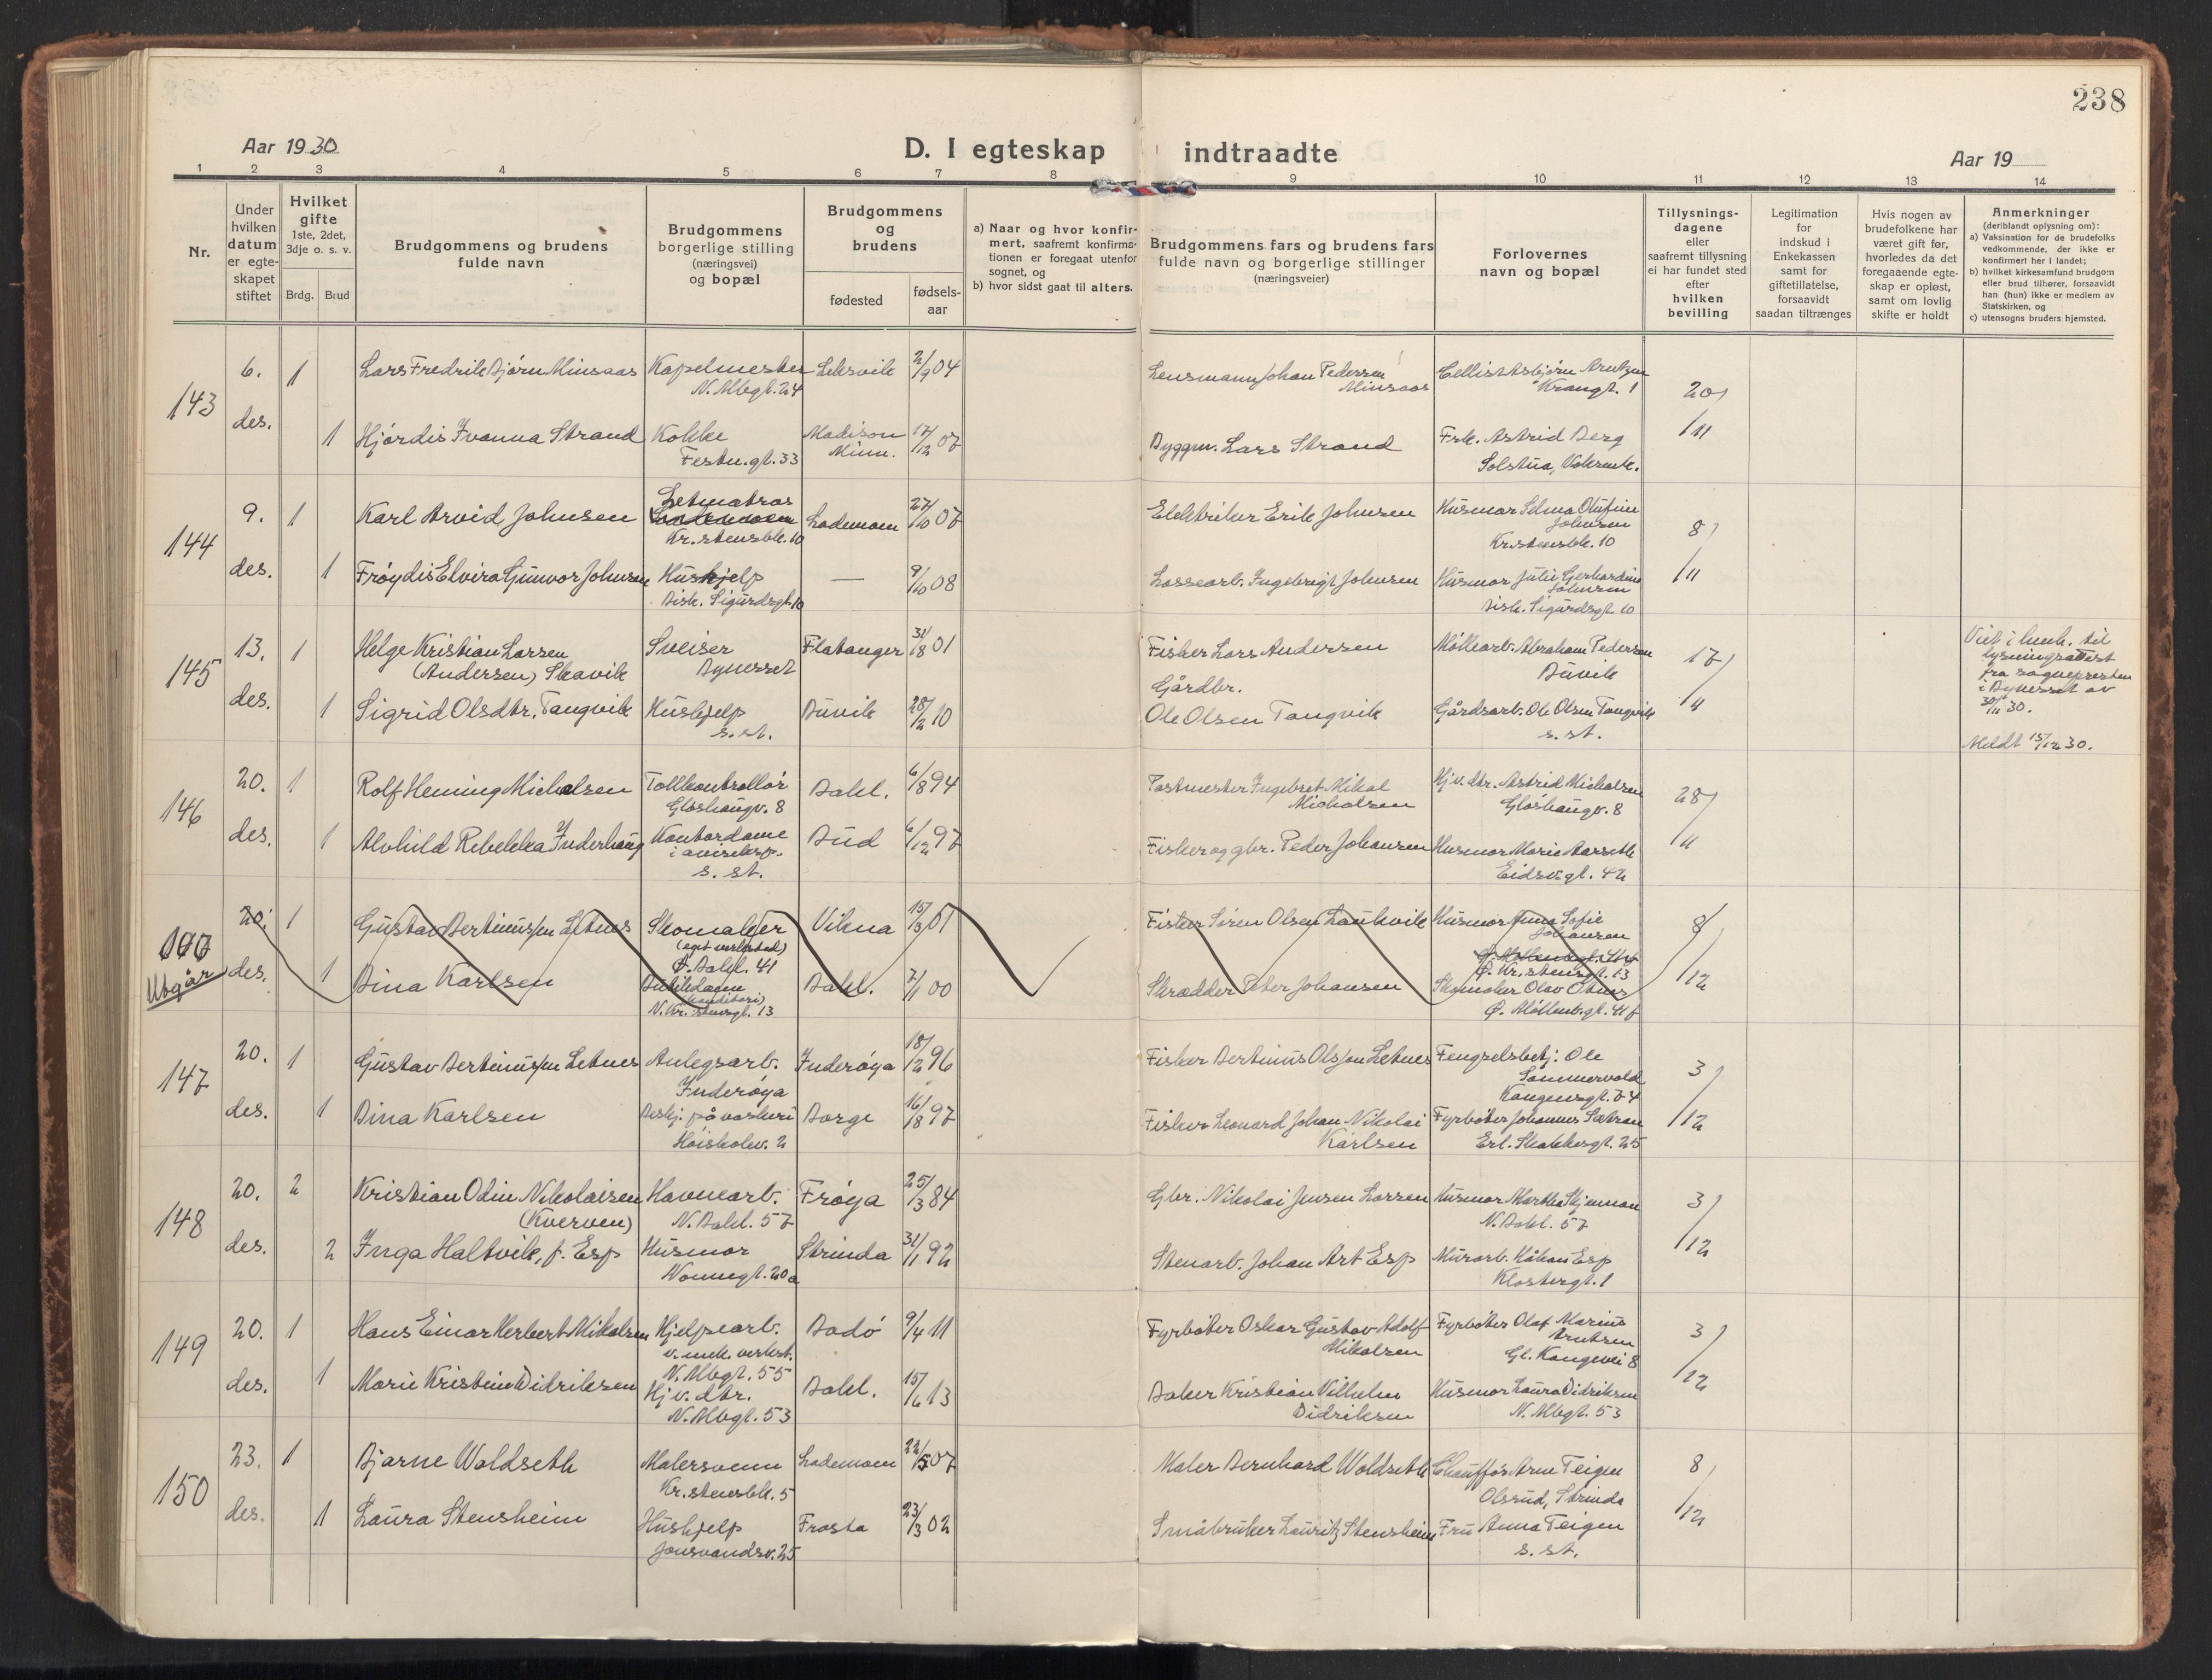 238
Aar 1930
D. I egteskap indtraadte
Aar 19
1 2 3 4 5 6 7 8 9 10 11 12 13 14
Nr.
Under hvilken datum er egteskapet stiftet
Hvilket gifte 1ste, 2det, 3dje o. s. v.
Brdg. Brud
Brudgommens og brudens fulde navn
Brudgommens borgerlige stilling (næringsvei) og bopæl
Brudgommens og brudens
fødested
fødsels-aar
a) Naar og hvor konfirmert, saafremt konfirmationen er foregaat utenfor sognet, og
b) hvor sidst gaat til alters.
Brudgommens fars og brudens fars fulde navn og borgerlige stillinger (næringsveier)
Forlovernes navn og bopæl
Tillysningsdagene eller saafremt tillysning ei har fundet sted efter hvilken bevilling
Legitimation for indskud i Enkekassen samt for giftetillatelse, forsaavidt saadan tiltrænges
Hvis nogen av brudefolkene har været gift før, hvorledes da det foregaaende egteskap er opløst, samt om lovlig skifte er holdt
Anmerkninger (deriblandt oplysning om):
a) Vaksination for de brudefolks vedkommende, der ikke er konfirmert her i landet;
b) hvilket kirkesamfund brudgom eller brud tilhører, forsaavidt han (hun) ikke er medlem av Statskirken, og
c) utensogns bruders hjemsted.
143
6. 1 Lars Fredrik Bjørn Minsaas Kapelmester Leksvik 2/9 04 Lensmann Johan Pedersen Cellist Asbjørn Arntzen
N. Mbgt. 24 Minsaas Krangt. 1 20/11
des. 1 Hjørdis Ivanna Strand Kokke Madison 07 Byggm. Lars Strand Frk. Astrid Berg
Festn.gt. 33 Minn. Solstua,
144
9. 1 Karl Arvid Johnsen Letmatros Lademoen 27/10 07 Elektriker Erik Johnsen Husmor Selma Olufine
Johnsen
Kr.stensblk. 10 Kr.stensblk. 10 8/11
des. 1 Frøydis Elvira Gunvor Johnsen Hushjelp — 9/10 08 Lossearb. Ingebrigt Johnsen Husmor Julie Gerhardine
Johnsen
Bisk. Sigurdsgt. 10 Bisk. Sigurdsgt. 10
145
13. 1 Helge Kristian Larsen Sveiser Flatanger 31/8 01 Fisker Lars Andersen Møllearb. Abraham Pedersen
(Andersen) Skavik Bynesset Buvik 17/11
Viet i henh. til
lysningsattest
fra sognepresten
i Bynesset av
30/11 30.
Meldt 15/12 30.
Gårdbr.
des. 1 Sigrid Olsdtr. Tangvik Hushjelp Buvik 10 Ole Olsen Tangvik Gårdsarb. Ole Olsen Tangvik
s. st. s. st.
146
20. 1 Rolf Heming Michalsen Tollkontrollør Bakl. 6/8 94 Postmester Ingebret Mikal Hjv. dtr. Astrid Michalsen
Gløshaugv. 8 Michalsen Gløshaugv. 8 28/11
des. 1 Alvhild Rebekka Inderhaug Kontordame Bud 6/12 97 Fisker og gbr. Peder Johansen Husmor Marie Aarseth
i aviseksp. Eidsv.gt. 42
s. st.
Utgår
20. 1 Gustav Bertinussen Letnes Skomaker Vikna 15/3 01 Fisker Søren Olsen Laukvik Husmor Anna Sofie
Johansen
(eget verksted)
Ø. Bakl. 41 Ø. Kr.stensgt. 13 8/12
des. 1 Dina Karlsen Butikkdame Bakl. 7/1 00 Skrædder Peter Johansen Skomaker Olav
(konditori)
N. Kr.stensgt. 13 Ø. Møllenb.gt. 41
147
20. 1 Gustav Bertinussen Letnes Anlegsarb. Inderøya 18/12 96 Fisker Bertinus Olsson Letnes Fengselsbetj. Ole
Inderøya Sommervold
Kongensgt. 74 3/12
des. 1 Dina Karlsen Beskj. på vaskeri Borge 16/8 97 Fisker Leonard Johan Nikolai Fyrbøter Johannes Sætran
Høiskolev. 2 Karlsen Erl. Skakkesgt. 25
148
20. 2 Kristian Odin Nikolaisen Havnearb. Frøya 25/3 84 Gbr. Nikolai Jensen Larsen Husmor Martha Skjemman
(Kverven) N. Bakl. 57 N. Bakl. 57 3/12
des. 2 Inga Haltvik, f. Esp Husmor Strinda 31/1 92 Stenarb. Johan Art Esp Murarb. Håkon Esp
Nonnegt. 20a Klostergt. 1
149
20. 1 Hans Einar Herbert Mikalsen Hjelpearb. Bodø 9/4 11 Fyrbøter Oskar Gustav Adolf Fyrbøter Olaf Marius
v. mek. verkst. Mikalsen Arntsen
N. Mbgt. 55 Gl. Kongevei 8 3/12
des. 1 Marie Kristine Didriksen Hjv. dtr. Bakl. 15/6 13 Baker Kristian Vilhelm Husmor Laura Didriksen
N. Mbgt. 53 Didriksen N. Mbgt. 53
150
23. 1 Bjarne Woldseth Malersvenn Lademoen 22/5 07 Maler Bernhard Woldseth Chauffør Arne Teigen
Kr.stensblk. 5 Olsrud, Strinda 8/12
des. 1 Laura Stensheim Hushjelp Frosta 23/3 02 Småbruker Lauritz Stensheim Fru Anna Teigen
Jonsvandsv. 25 s. st.